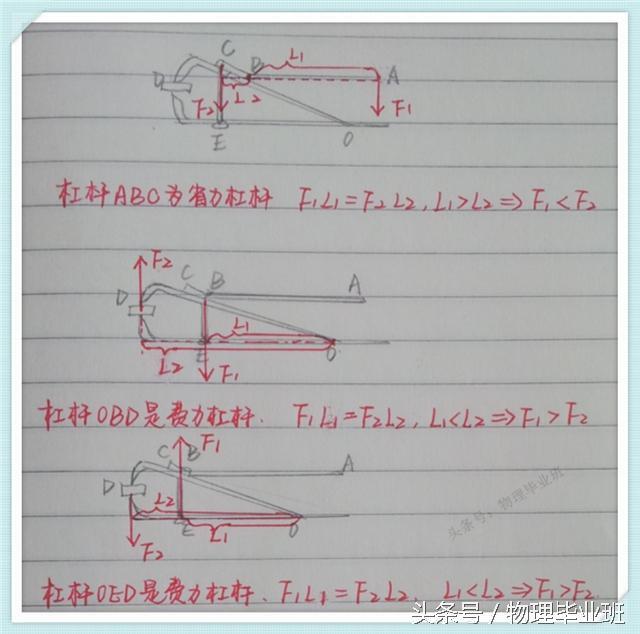 C
B
L₁
D
A
F₂
L₂
F₁
E
O
杠杆ABC为省力杠杆 F₁L₁=F₂L₂,L₁>L₂⇒F₁<F₂
F₂
C
B
A
D
L₁
E
O
L₂
F₁
杠杆OBD是费力杠杆. F₁L₁=F₂L₂, L₁<L₂⇒F₁>F₂
F₁
C
B
A
D
L₂
E
L₁
O
F₂
头条号:物理毕业班
杠杆OED是费力杠杆. F₁L₁=F₂L₂, L₁<L₂⇒F₁>F₂
头条号 / 物理毕业班